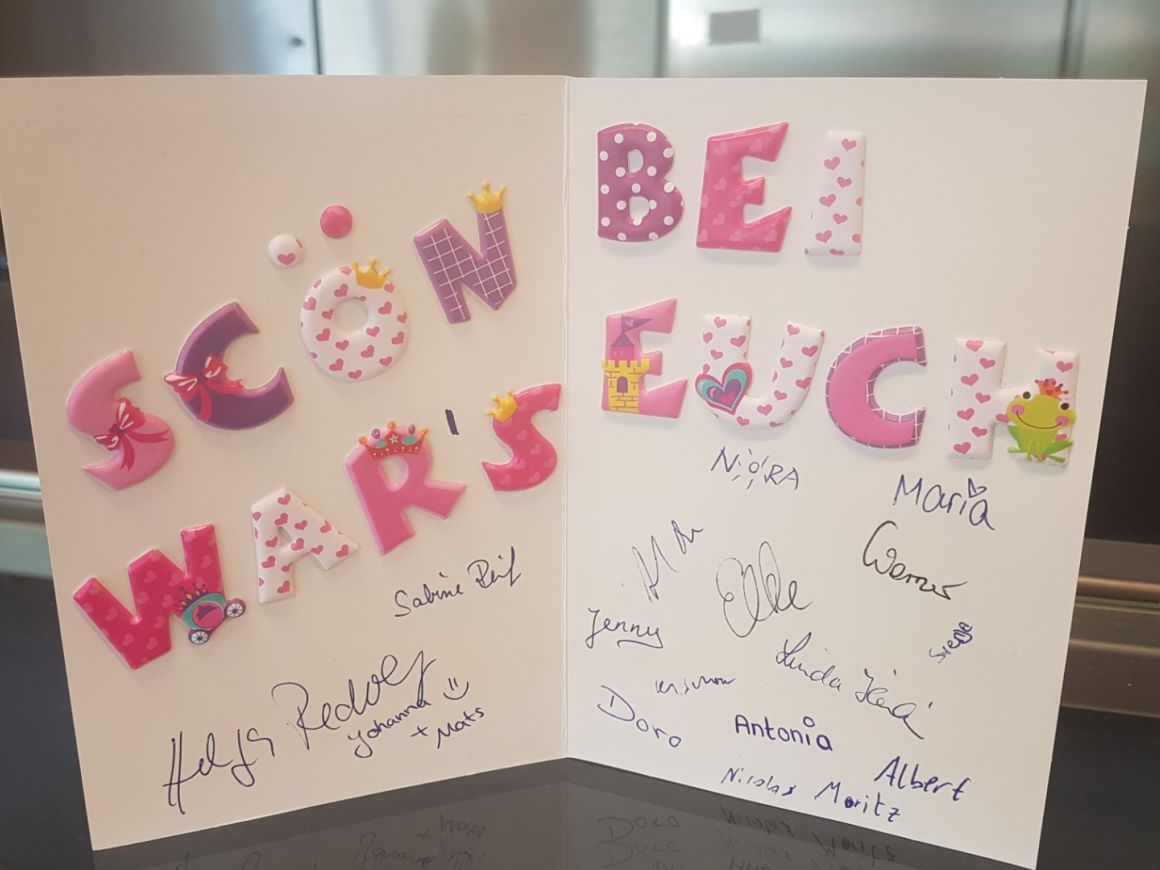 SCÖN
WAR'S
Sabine
Helga Redolf
Johanna
+ Mats
BEI
EUCH
NORA
Maria
Werner
Elke
Jenny
Svenja
Linda
Doro
Antonia
Albert
Nicolas Moritz